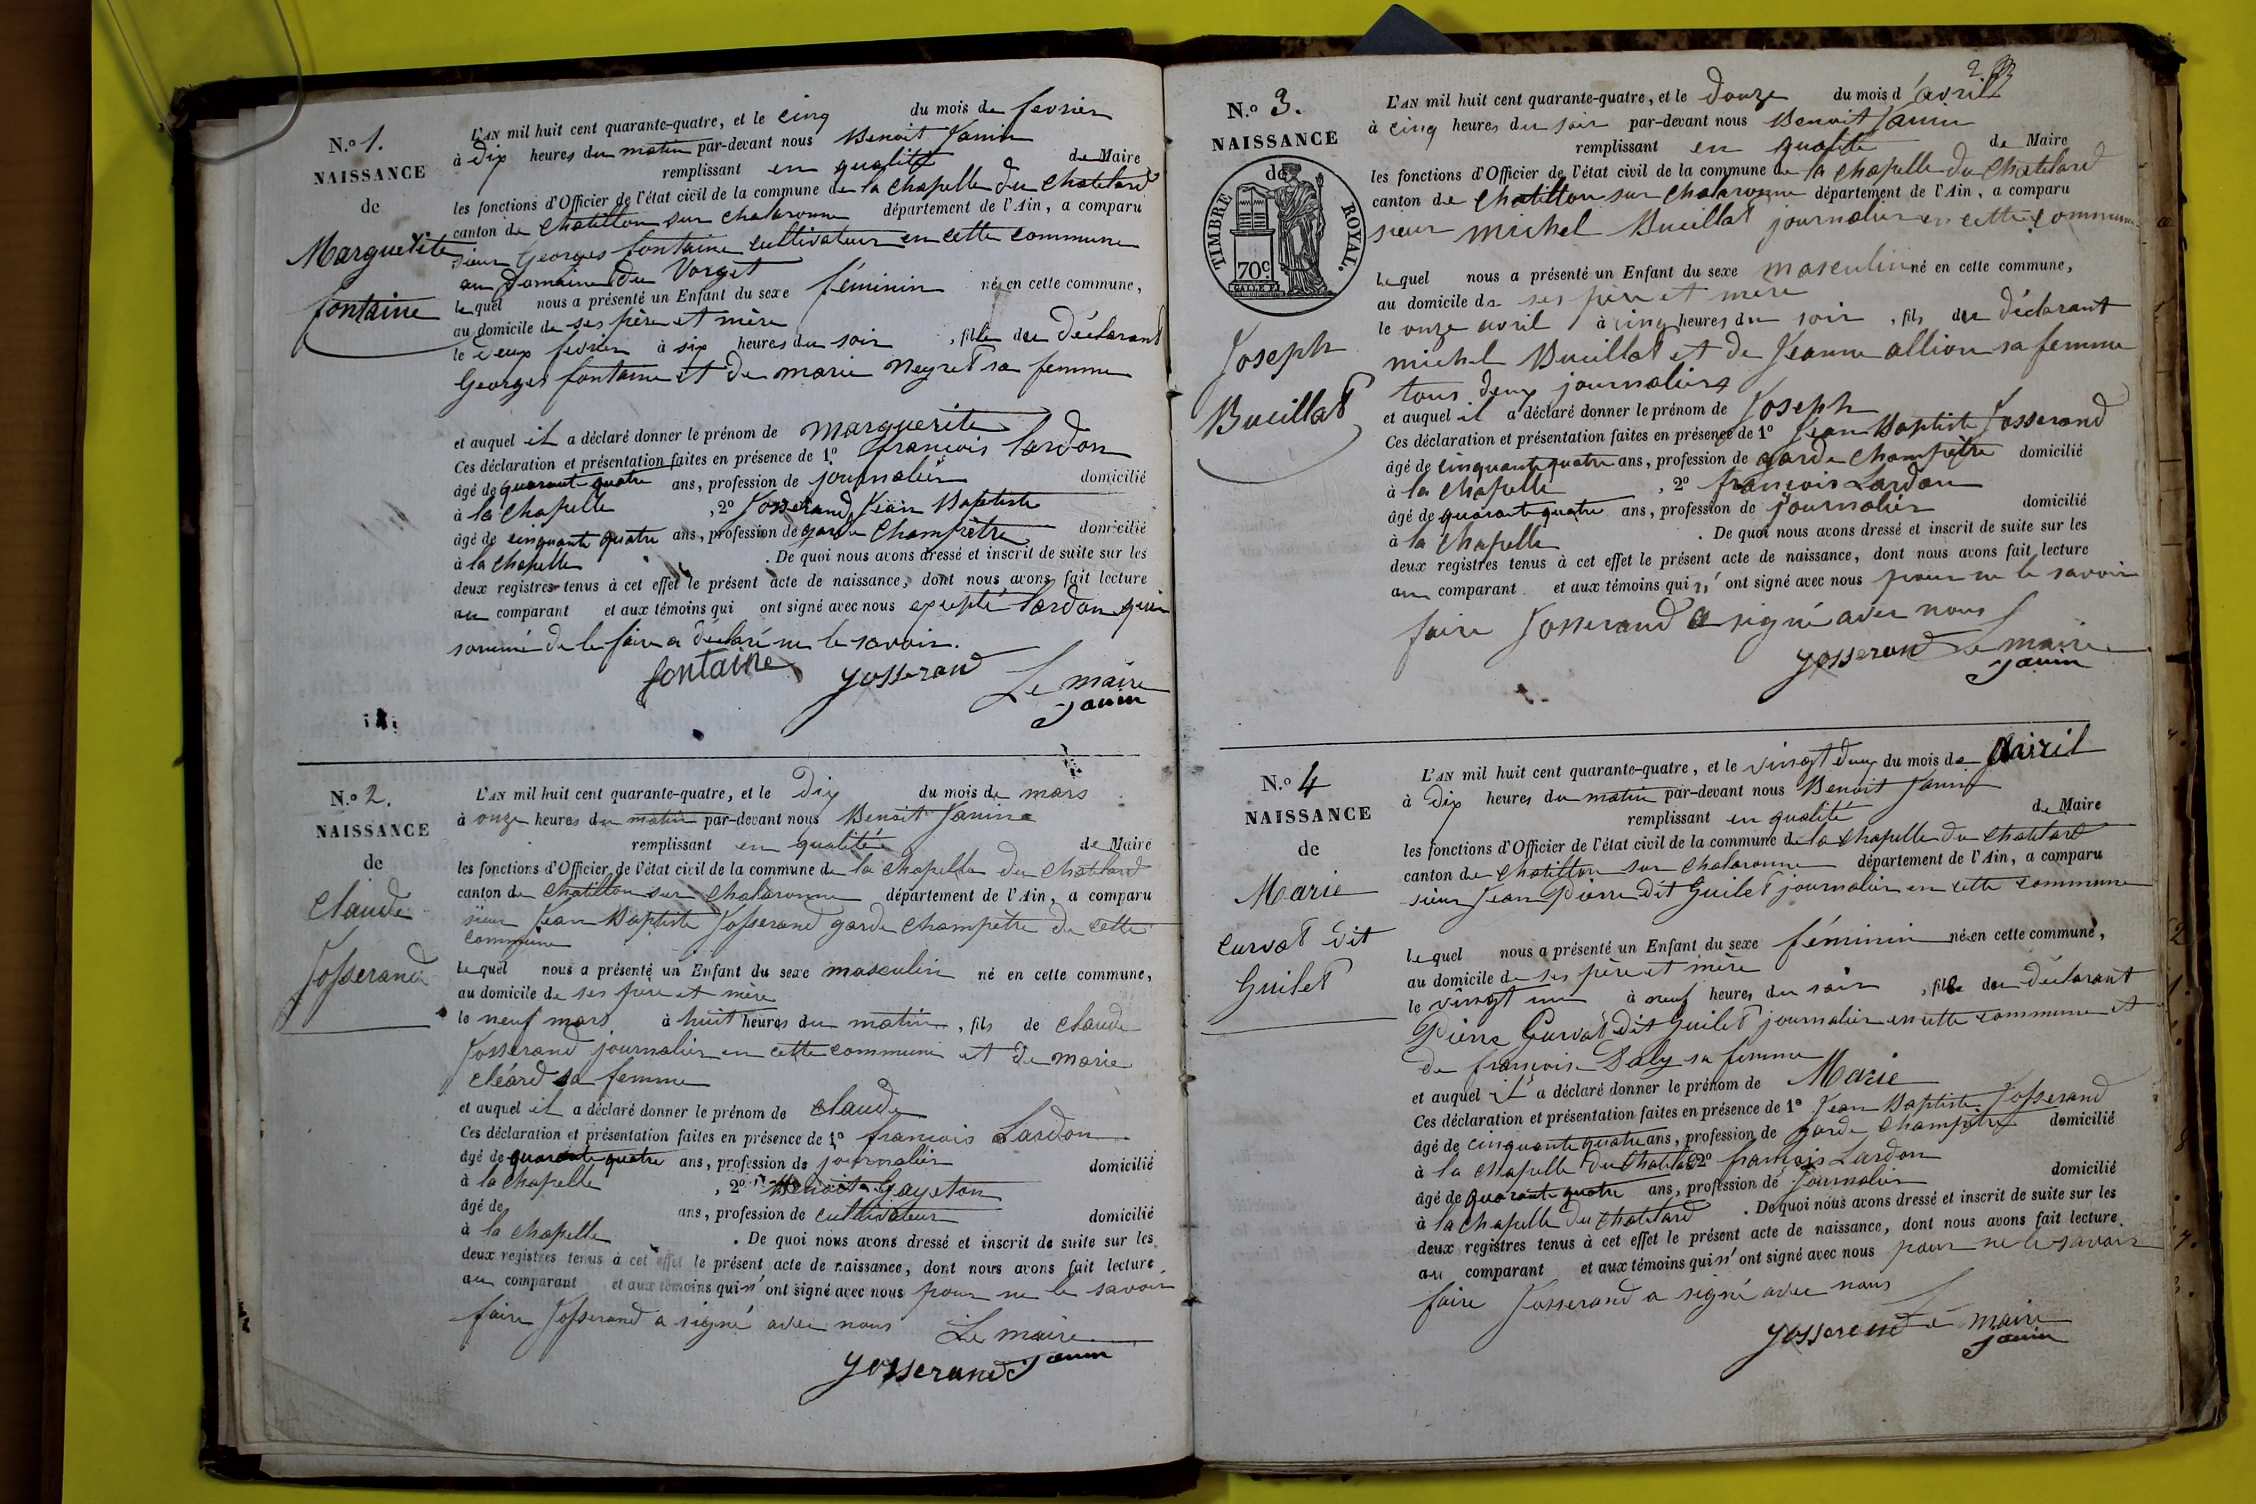 N.o 1.
NAISSANCE
de
Marguerite
fontaine
L'AN mil huit cent quarante-quatre, et le cinq du mois de fevrier
à dix heures du matin par-devant nous Benoit Janin
remplissant en qualité de Maire
les fonctions d'Officier de l'état civil de la commune de la chapelle du chatelard
canton de chatillon sur chalaronne département de l'Ain, a comparu
sieur Georges fontaine cultivateur en cette commune
au domaine du Vorget
lequel nous a présenté un Enfant du sexe féminin né en cette commune,
au domicile de ses père et mère
le deux fevrier à six heures du soir, fille du déclarant
Georges fontaine et de marie neyret sa femme
et auquel il a déclaré donner le prénom de marguerite
Ces déclaration et présentation faites en présence de 1o françois Lardon
âgé de quarante quatre ans, profession de journalier domicilié
à la chapelle, 2o Josserand Jean Baptiste
âgé de cinquante quatre ans, profession de garde champêtre domicilié
à la chapelle. De quoi nous avons dressé et inscrit de suite sur les
deux registres tenus à cet effet le présent acte de naissance, dont nous avons fait lecture
au comparant et aux témoins qui ont signé avec nous excepté Lardon qui
sommé de le faire a déclaré ne le savoir.
fontaine Josserand Le maire
Janin
N.o 2.
NAISSANCE
de
claude
Josserand
L'AN mil huit cent quarante-quatre, et le dix du mois de mars
à onze heures du matin par-devant nous Benoit Janin
remplissant en qualité de Maire
les fonctions d'Officier de l'état civil de la commune de la chapelle du chatelard
canton de chatillon sur chalaronne département de l'Ain, a comparu
sieur Jean Baptiste Josserand garde champêtre de cette
commune
lequel nous a présenté un Enfant du sexe masculin né en cette commune,
au domicile de ses père et mère
le neuf mars à huit heures du matin, fils de claude
Josserand journalier en cette commune et de marie
cléard sa femme
et auquel il a déclaré donner le prénom de claude
Ces déclaration et présentation faites en présence de 1o francois Lardon
âgé de quarante quatre ans, profession de journalier domicilié
à la chapelle, 2o Benoit Gayeton
âgé de ans, profession de cultivateur domicilié
à la chapelle. De quoi nous avons dressé et inscrit de suite sur les
deux registres tenus à cet effet le présent acte de naissance, dont nous avons fait lecture
au comparant et aux témoins qui n'ont signé avec nous pour ne le savoir
faire Josserand a signé avec nous Le maire
Josserand Janin
2.
N.o 3.
NAISSANCE
de
TIMBRE ROYAL.
70c.
Joseph
Bueillat
L'AN mil huit cent quarante-quatre, et le douze du mois d'avril
à cinq heures du soir par-devant nous Benoit Janin
remplissant en qualité de Maire
les fonctions d'Officier de l'état civil de la commune de la chapelle du chatelard
canton de chatillon sur chalaronne département de l'Ain, a comparu
sieur michel Bueillat journalier en cette commune
lequel nous a présenté un Enfant du sexe masculin né en cette commune,
au domicile de ses père et mère
le onze avril à cinq heures du soir, fils du déclarant
michel Bueillat et de Jeanne allion sa femme
tous deux journaliers
et auquel il a déclaré donner le prénom de Joseph
Ces déclaration et présentation faites en présence de 1o Jean Baptiste Josserand
âgé de cinquante quatre ans, profession de garde champêtre domicilié
à la chapelle, 2o françois Lardon
âgé de quarante quatre ans, profession de journalier domicilié
à la chapelle. De quoi nous avons dressé et inscrit de suite sur les
deux registres tenus à cet effet le présent acte de naissance, dont nous avons fait lecture
au comparant et aux témoins qui n'ont signé avec nous pour ne le savoir
faire Josserand a signé avec nous
Josserand Le maire
Janin
N.o 4
NAISSANCE
de
Marie
curvat dit
Guilet
L'AN mil huit cent quarante-quatre, et le vingt deux du mois de Avril
à dix heures du matin par-devant nous Benoit Janin
remplissant en qualité de Maire
les fonctions d'Officier de l'état civil de la commune de la chapelle du chatelard
canton de chatillon sur chalaronne département de l'Ain, a comparu
sieur Jean Pierre dit Guilet journalier en cette commune
lequel nous a présenté un Enfant du sexe féminin né en cette commune,
au domicile de ses père et mère
le vingt un à neuf heures du soir, fille du déclarant
Pierre Curvat dit Guilet journalier en cette commune et
de françoise Daly sa femme
et auquel il a déclaré donner le prénom de Marie
Ces déclaration et présentation faites en présence de 1o Jean Baptiste Josserand
âgé de cinquante quatre ans, profession de garde champêtre domicilié
à la chapelle du chatelard 2o françois Lardon
âgé de quarante quatre ans, profession de journalier domicilié
à la chapelle du chatelard. De quoi nous avons dressé et inscrit de suite sur les
deux registres tenus à cet effet le présent acte de naissance, dont nous avons fait lecture
au comparant et aux témoins qui n'ont signé avec nous pour ne le savoir
faire Josserand a signé avec nous
Josserand Le maire
Janin